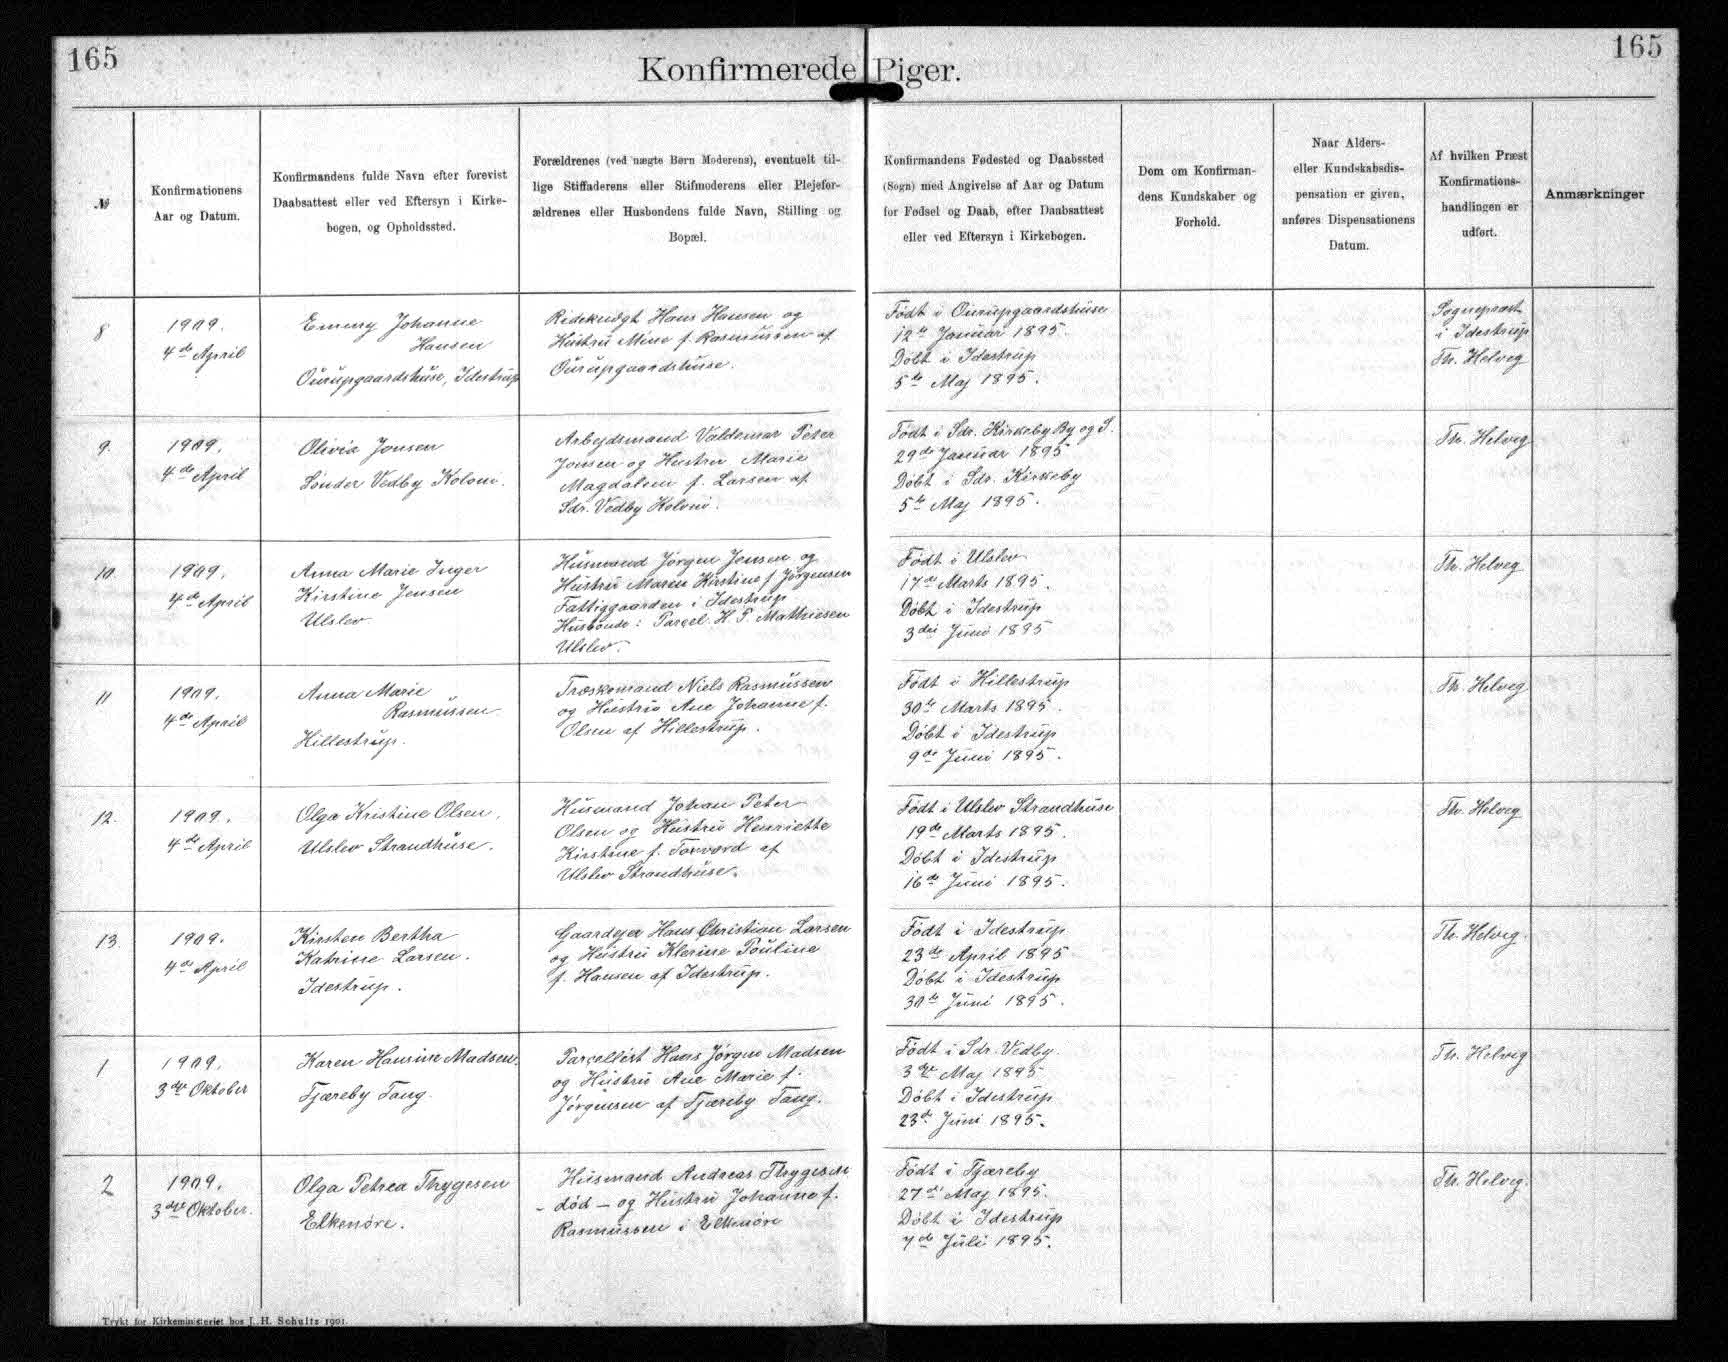 165
165
Konfirmerede Piger.
№
Konfirmationens
Aar og Datum.
Konfirmandens fulde Navn efter forevist
Daabsattest eller ved Eftersyn i Kirke-
bogen, og Opholdssted.
Forældrenes (ved uægte Børn Moderens), eventuelt til-
lige Stiffaderens eller Stifmoderens eller Plejefor-
ældrenes eller Husbondens fulde Navn, Stilling og
Bopæl.
Konfirmandens Fødested og Daabssted
(Sogn) med Angivelse af Aar og Datum
for Fødsel og Daab, efter Daabsattest
eller ved Eftersyn i Kirkebogen.
Dom om Konfirman-
dens Kundskaber og
Forhold.
Naar Alders-
eller Kundskabsdis-
pensation er given,
anføres Dispensationens
Datum.
Af hvilken Præst
Konfirmations-
handlingen er
udført.
Anmærkninger
8
1909.
4de April
Emmy Johanne
Hansen
Ourupgaardshuse, Idestrup
Rideknægt Hans Hansen og
Hustru Mine f. Rasmussen af
Ourupgaardshuse.
Født i Ourupgaardshuse
12te Januar 1895.
Døbt i Idestrup
5te Maj 1895.
Sognepræst
i Idestrup
Th. Helveg
9.
1909.
4de April
Olivia Jensen
Sønder Vedby Koloni.
Arbejdsmand Valdemar Peter
Jensen og Hustru Marie
Magdalene f. Larsen af
Sdr. Vedby Koloni.
Født i Sdr. Kirkeby By og S.
29de Januar 1895
Døbt i Sdr. Kirkeby
5te Maj 1895.
Th. Helveg
10.
1909.
4de April
Anna Marie Inger
Kirstine Jensen
Ulslev
Husmand Jørgen Jensen og
Hustru Maren Kirstine f. Jørgensen
Fattiggaarden i Idestrup
Husbonde: Parcel. H. P. Mathiesen
Ulslev.
Født i Ulslev
17de Marts 1895.
Døbt i Idestrup
3die Juni 1895
Th. Helveg
11
1909.
4de April
Anna Marie
Rasmussen.
Hillestrup.
Træskomand Niels Rasmussen
og Hustru Ane Johanne f.
Olsen af Hillestrup.
Født i Hillestrup
30te Marts 1895.
Døbt i Idestrup
9de Juni 1895.
Th. Helveg
12.
1909.
4de April
Olga Kristine Olsen.
Ulslev Strandhuse.
Husmand Johan Peter
Olsen og Hustru Henriette
Kirstine f. Torvard af
Ulslev Strandhuse.
Født i Ulslev Strandhuse
19de Marts 1895.
Døbt i Idestrup
16de Juni 1895.
Th. Helveg
13.
1909.
4de April
Kirsten Bertha
Katrine Larsen.
Idestrup.
Gaardejer Hans Christian Larsen
og Hustru Klerine Pouline
f. Hansen af Idestrup.
Født i Idestrup
23de April 1895
Døbt i Idestrup
30te Juni 1895.
Th. Helveg.
1
1909.
3die Oktober
Karen Hansine Madsen.
Tjæreby Tang.
Parcellist Hans Jørgen Madsen
og Hustru Ane Marie f.
Jørgensen af Tjæreby Tang.
Født i Sdr. Vedby.
3die Maj 1895
Døbt i Idestrup
23de Juni 1895.
Th. Helveg
2
1909.
3die Oktober.
Olga Petrea Thygesen
Elkenøre.
Husmand Andreas Thygesen
- død - og Hustru Johanne f.
Rasmussen i Elkenøre
Født i Tjæreby
27de Maj 1895.
Døbt i Idestrup
7de Juli 1895.
Th. Helveg.
Trykt for Kirkeministeriet hos J. H. Schultz 1901.